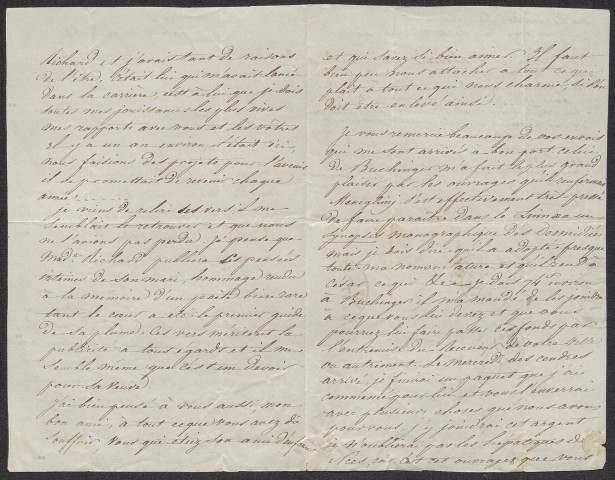 Richard et j'avais tant de raisons
de l'être, c'était lui qui m'avait lancé
dans la carrière; c'est à lui que je dois
toutes mes jouissances les plus vives
mes rapports avec vous et les vôtres
il y a un an environ c'était ici,
nous faisions des projets pour l'avenir
il se promettait de revenir chaque
année.........
je viens de relire ses vers il me
semblait le retrouver et que nous
ne l'avions pas perdu je pense que
Mad.e Richard publiera les pensées
intimes de son mari, hommage rendu
à la mémoire d'un poète bien rare
tant le cœur a été le premier guide
de sa plume. Ces vers méritent la
publicité à tous égards et il me
semble même que c'est un devoir
pour sa veuve.
J'ai bien pensé à vous aussi, mon
bon ami, à tout ce que vous avez dû
souffrir. Vous qui étiez son ami
et qui savez si bien aimer. Il faut
bien peu nous attacher à tout ce qui
plaît à tout ce qui nous charme, si l'on
doit être enlevé ainsi.
Je vous remercie beaucoup de vos envois
qui me sont arrivés à bon port celui
de Buchinger m'a fait le plus grand
plaisir par les ouvrages qu'il renfermait
s'est effectivement très pressé
de faire paraître dans le Linnæa un
synopsis monographique des Desmidiées
mais je dois dire qu'il a adopté presque
toute ma nomenclature et qu'il rend à
César ce qui &c. Je dois 74f environ
à Buchinger il m'a mandé de les joindre
à ce que vous lui devez et que vous
pourrez lui faire passer ces fonds par
l'entremise du Receveur de votre ville
ou autrement. Le mercredi des cendres
arrivé, je finirai un paquet que j'ai
commencé pour lui et vous l'enverrai
avec plusieurs choses que nous avons
pour vous, j'y joindrai cet argent
je n'oublierai pas les hépatiques de
Nees, car cet ouvrage que vous